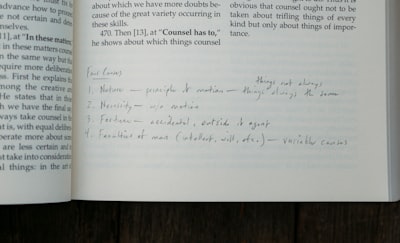 advance how to
not certain and
mselves.
11], at "In these matters
in these matters
n the same way but
equire more deliberation
ss. First he explains
mong the creative
He states that in
h we have the final
ways take counsel in
t is, with equal deliber
perate more about
are less certain and
t take into consideration
al things: in the art
about which we have more doubts be-
cause of the great variety occurring in
these skills.
470. Then [13], at "Counsel has to,"
he shows about which things counsel
obvious that counsel ought not to be
taken about trifling things of every
kind but only about things of impor-
tance.
Four Causes
things not always
1. Nature — principle of motion — things always the same
2. Necessity — w/o motion
3. Fortune — accidental, outside of agent
4. Faculties of man (intellect, will, etc.) — variable causes